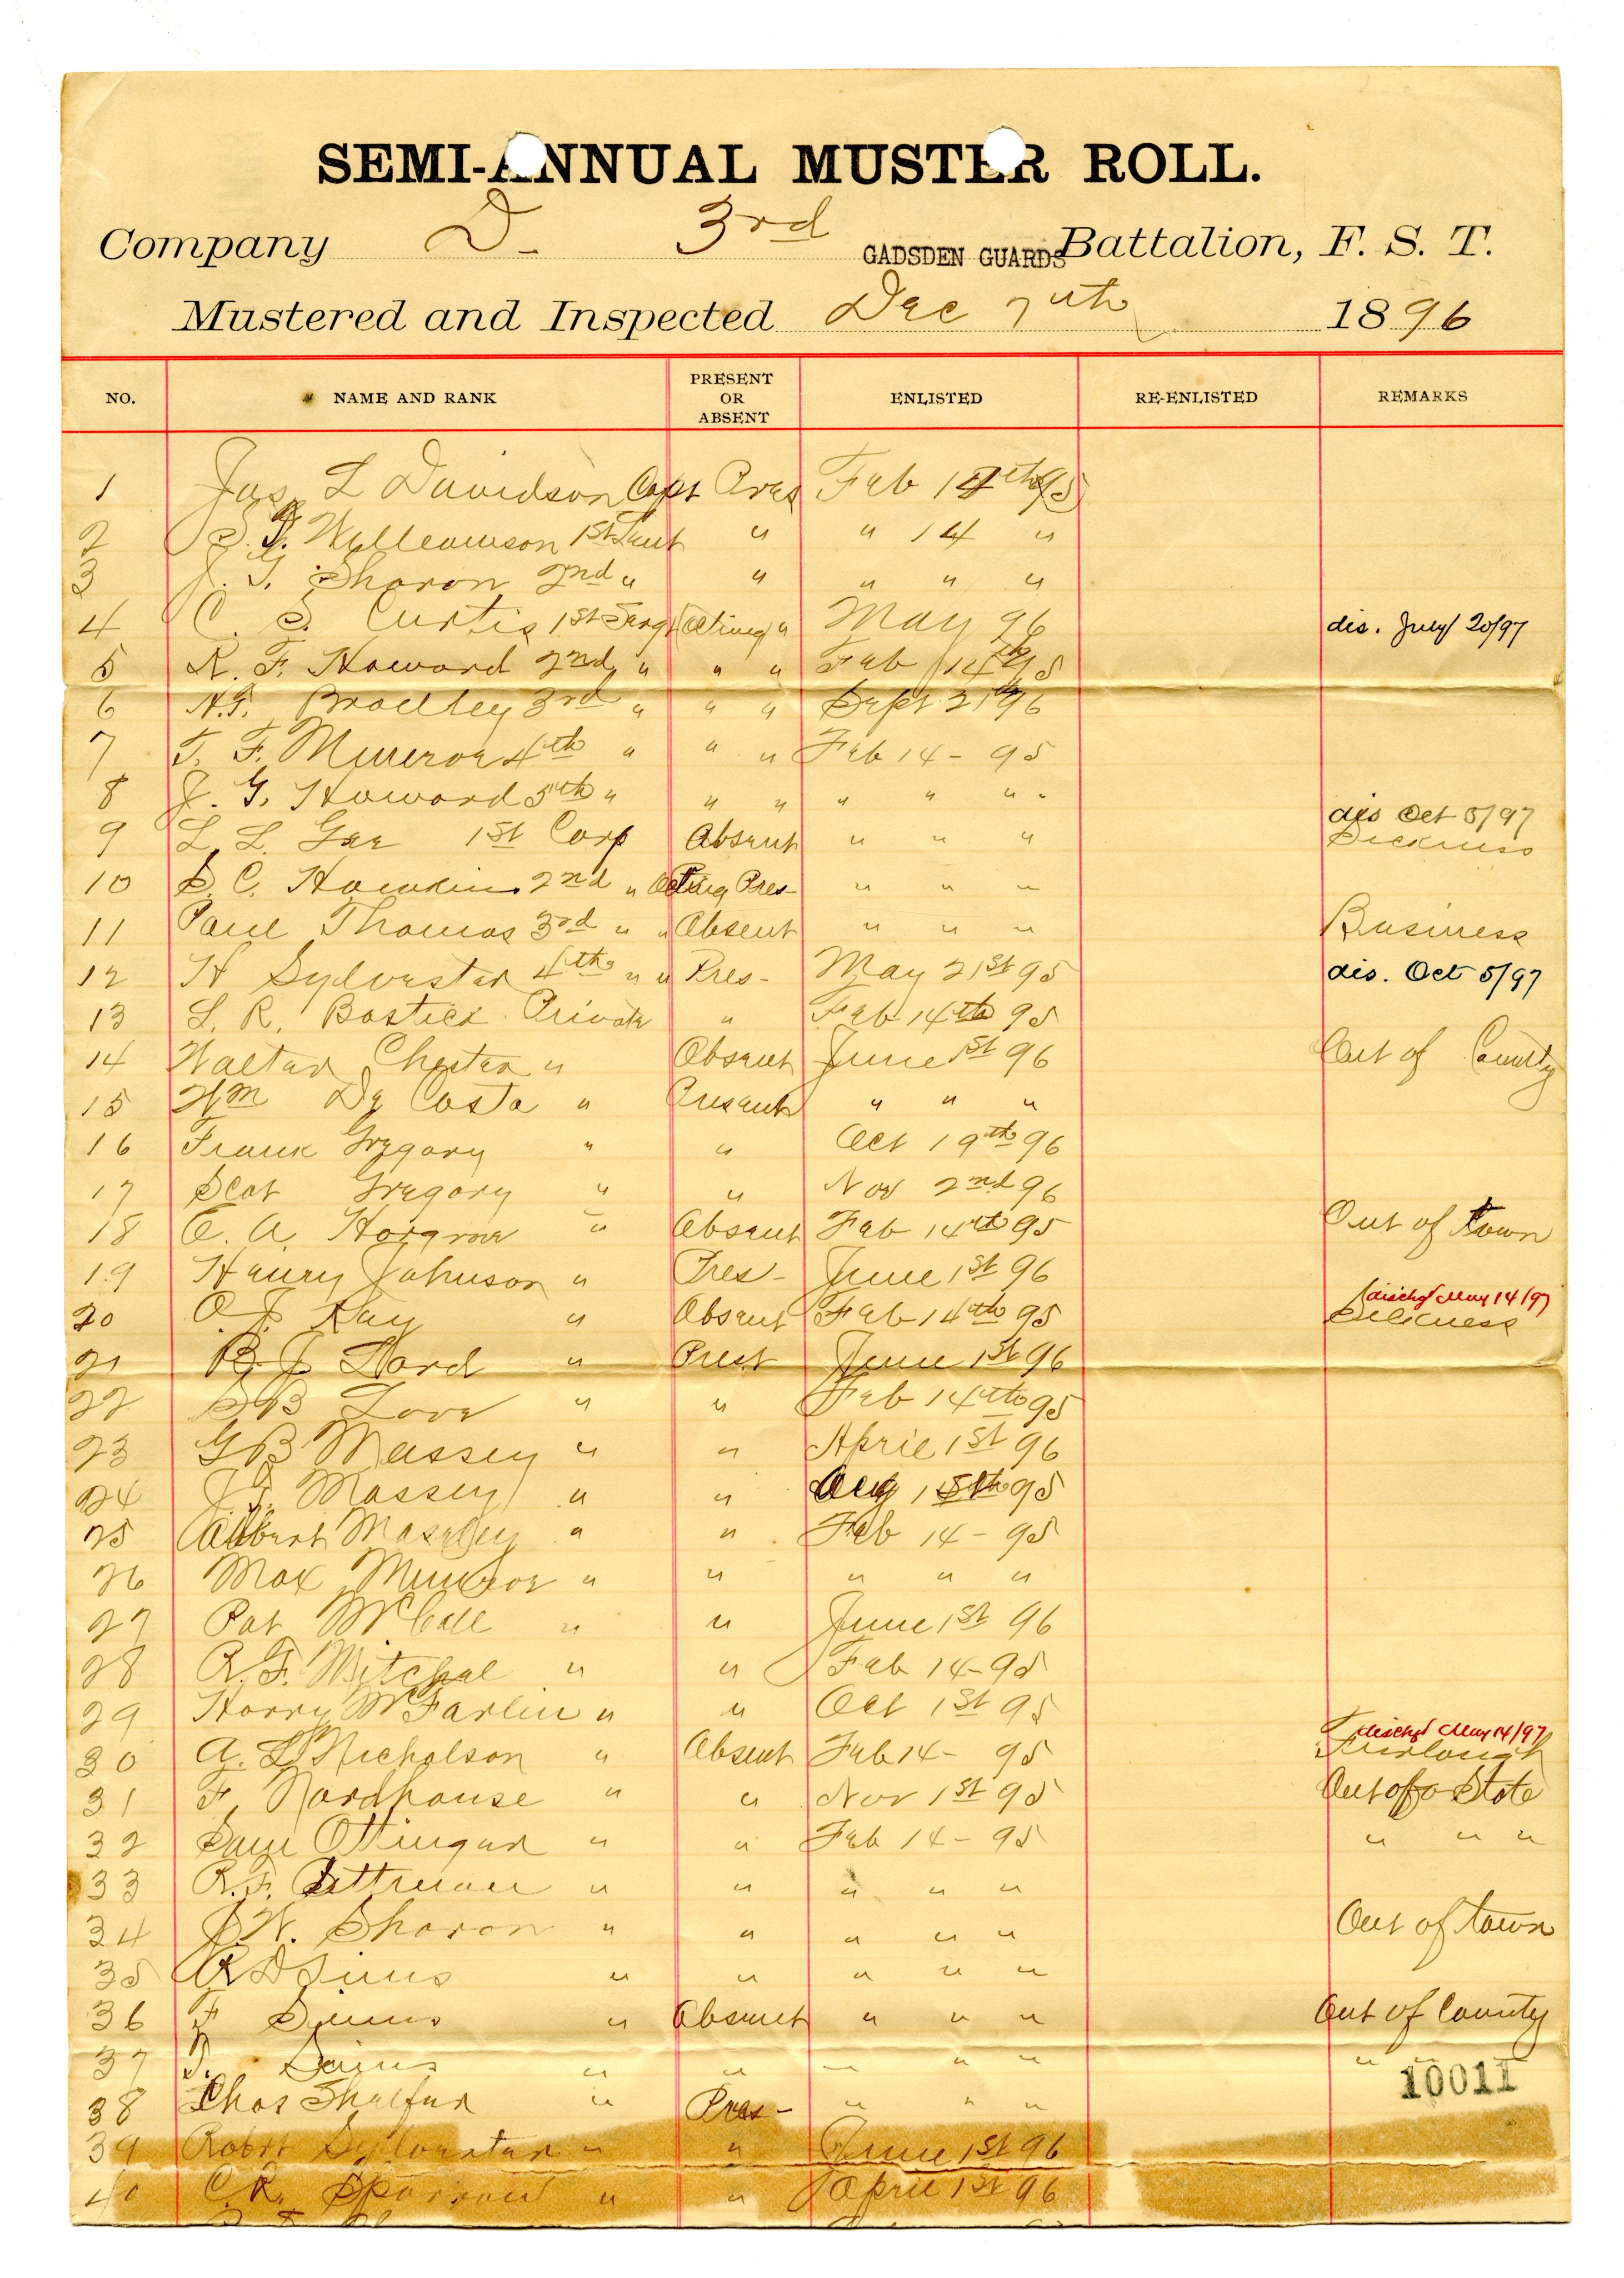 SEMI-ANNUAL MUSTER ROLL.
Company D. 3rd GADSDEN GUARDS Battalion, F. S. T.
Mustered and Inspected Dec 7th 1896
NO. NAME AND RANK PRESENT OR ABSENT ENLISTED RE-ENLISTED REMARKS
1 Jas L Davidson Capt Pres Feb 14th 95
2 Williamson 1st Lieut " " 14 "
3 J. G. Sharon 2nd " " " " "
4 C. S. Curtis 1st Serg Acting " May 96 dis. July 20/97
5 R. F. Howard 2nd " " " Feb 14th 95
6 N.T. Bradley 3rd " " " Sept 21 96
7 T. F. Munroe 4th " " " Feb 14 - 95
8 J. G. Howard 5th " " " " " "
9 L. L. Gee 1st Corp Absent " " " dis Oct 5/97 Sickness
10 S. C. Hawkins 2nd " Acting Pres - " " "
11 Paul Thomas 3rd " " Absent " " " Business
12 H Sylvester 4th " " Pres - May 21st 95 dis. Oct 5/97
13 L. R. Bostick Private " Feb 14th 95
14 Walter Chester " Absent June 1st 96 Out of County
15 Wm De Costa " Present " " "
16 Frank Gregory " " Oct 19th 96
17 Scot Gregory " " Nov 2nd 96
18 C. A. " Absent Feb 14th 95 Out of town
19 Henry Johnson " Pres - June 1st 96
20 Kay " Absent Feb 14th 95 dischgd May 14/97 Sickness
21 B. J. " Prest June 1st 96
22 Love " " Feb 14th 95
23 G B Massey " " April 1st 96
24 Massey " " 15th 95
25 Albert " " Feb 14 - 95
26 Max Munroe " " " " "
27 Pat McCall " " June 1st 96
28 R. F. Mitchel " " Feb 14 - 95
29 Harry McFarlin " " Oct 1st 95
30 A. L. Nicholson " Absent Feb 14 - 95 dischgd May 14/97 Furlough
31 F. Nordhouse " " Nov 1st 95 Out of State
32 Sam Ottinger " " Feb 14 - 95 " " "
33 R. F. " " " " "
34 J. W. Sharon " " " " " Out of town
35 R D Sims " " " " "
36 F Sims " Absent " " " Out of County
37 T. Sims " " " " " " "
10011
38 Chas " Pres - " " "
39 Robt Sylvester " " June 1st 96
40 C. R. Sparrow " " April 1st 96